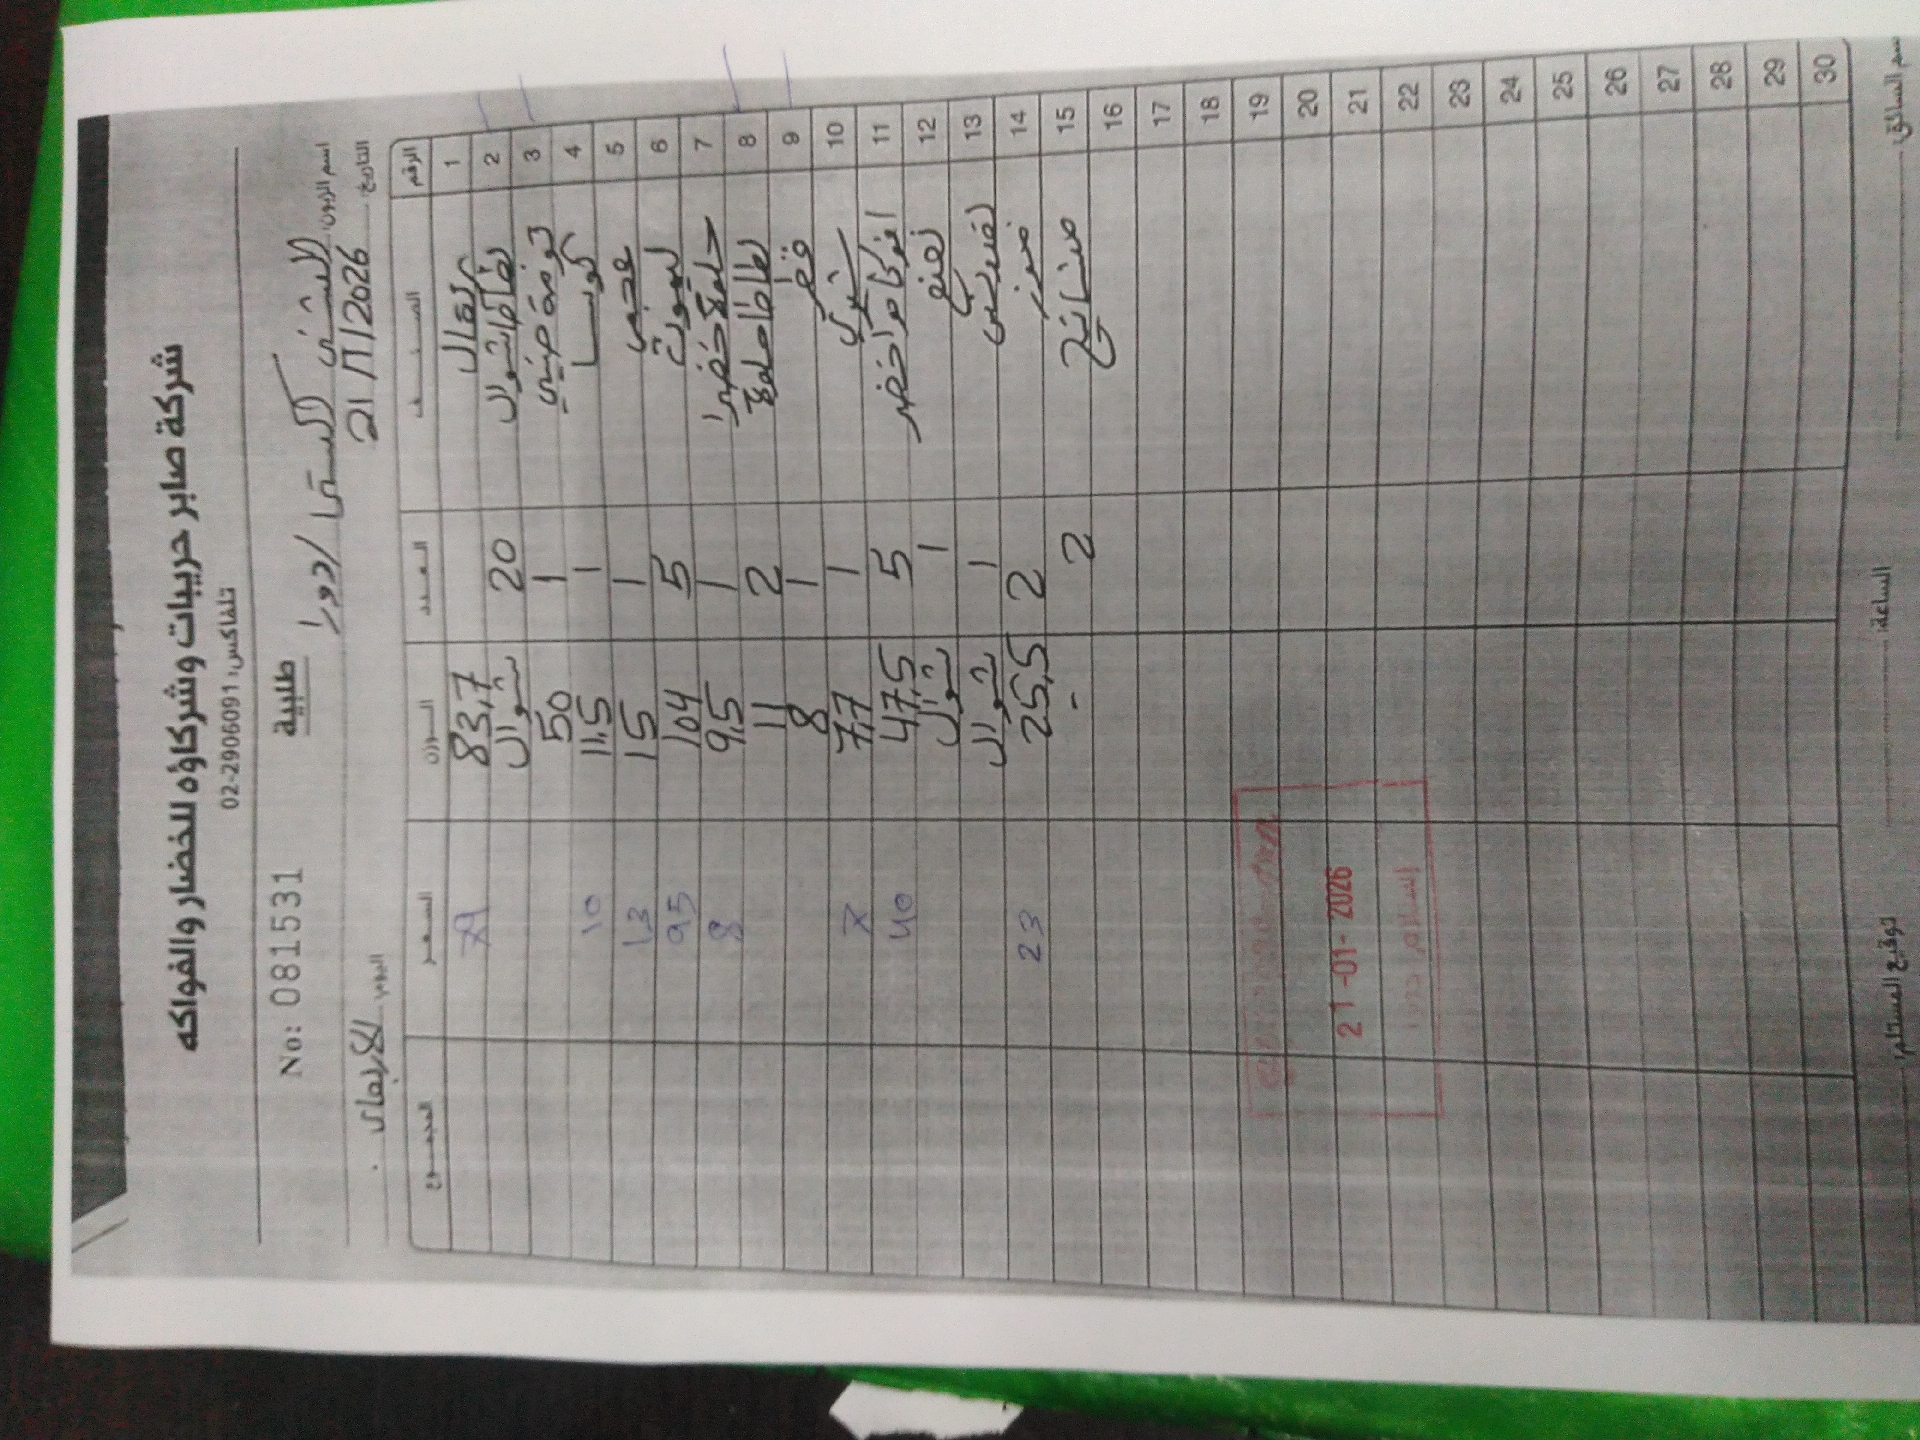 شركة صابر حريبات وشركاؤه للخضار والفواكه
تلفاكس: 02-2906091
No: 081531
طلبية
اسم الزبون:
دورا
التاريخ: 21/1/2026
اليوم: الأربعاء
الرقم الصنف العدد الوزن السعر المجموع
1 برتقال 83,7 79
2 بطاطا شوال 20 شوال
3 ثومة صيني 1 50
4 كوسا 1 11.5 10
5 1 15 13
6 ليمون 5 104 95
7 حلوة خضرا 1 9,5 8
8 بطاطا حلوة 2 11
9 فطر 1 8
10 1 7,7 7
11 افوكادو اخضر 5 47,5 40
12 نعنع 1 شوال
13 1 شوال
14 2 25,5 23
15 2 -
16
17
18
19
20
21
22
23
24
25
26
27
28
29
30
21-01-2026
دورا
اسم السائق:
الساعة:
توقيع المستلم: